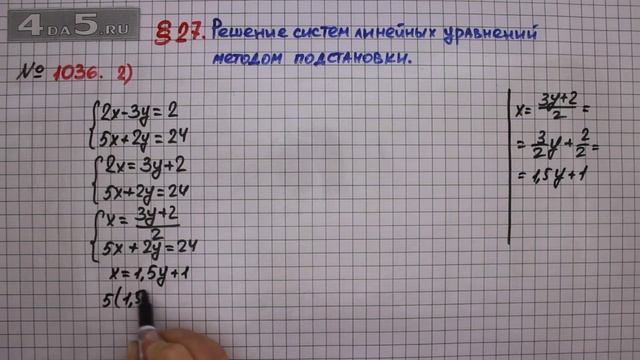 4DA5.RU
§27. Решение систем линейных уравнений
методом подстановки.
№ 1036. 2)
{2x-3y=2
{5x+2y=24
{2x=3y+2
{5x+2y=24
{x=\frac{3y+2}{2}
{5x+2y=24
x=1,5y+1
5(1,5
x=\frac{3y+2}{2}=
=\frac{3}{2}y+\frac{2}{2}=
=1,5y+1